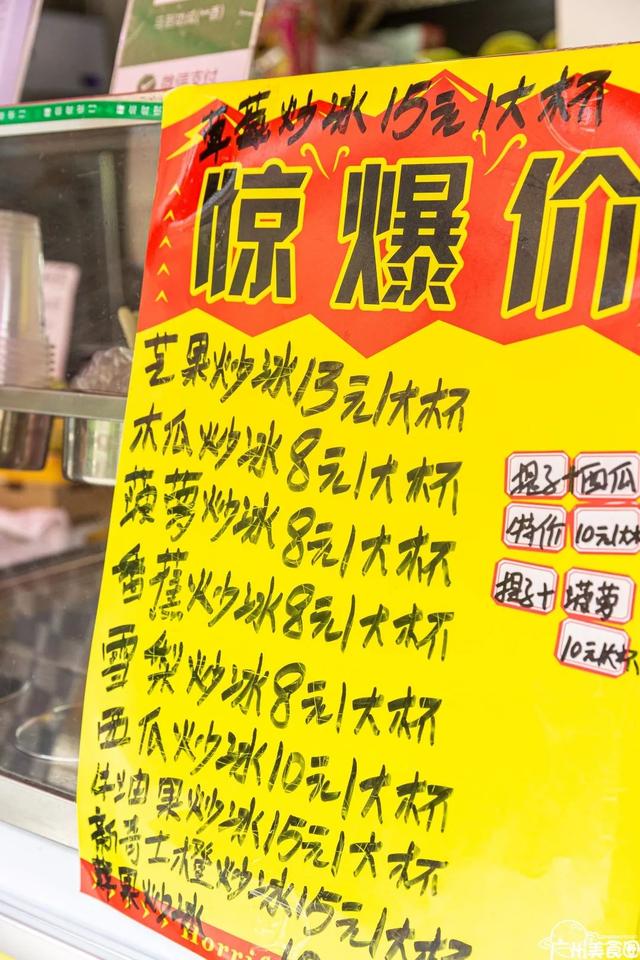 微信支付
草莓炒冰15元1大杯
惊爆价
芒果炒冰13元1大杯
木瓜炒冰8元1大杯
菠萝炒冰8元1大杯
香蕉炒冰8元1大杯
雪梨炒冰8元1大杯
西瓜炒冰10元1大杯
牛油果炒冰15元1大杯
新奇士橙炒冰15元1大杯
苹果炒冰
提子+西瓜
特价 10元1大杯
提子+菠萝
10元1大杯
Horri
广州美食团